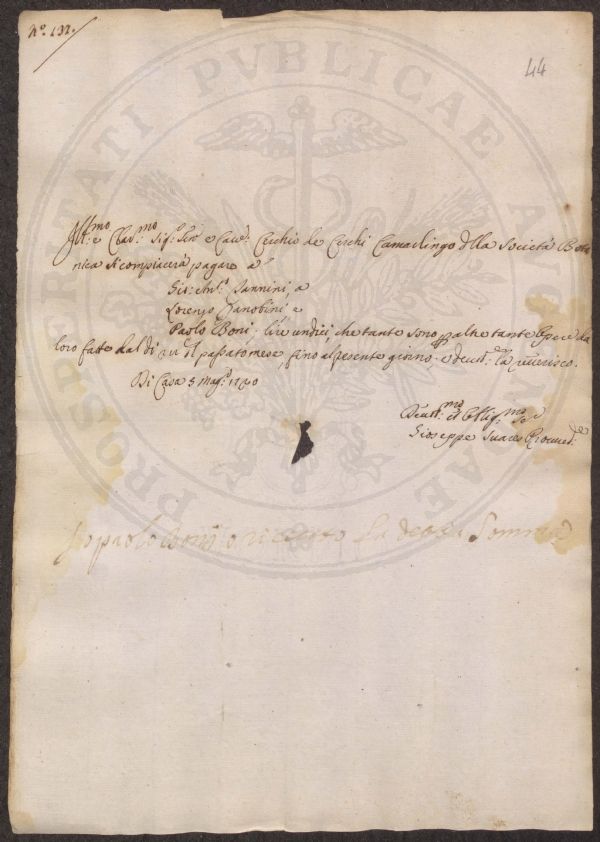 N.º 132.
44
PROSPERITATI PVBLICAE
Ill.mo e Clar.mo Sig.r Sen.r e Cav.r Cerchio de Cerchi Camarlingo della Società Bota
nica si compiacerà pagare a
Gio: Ant.o Nannini, a
Lorenzo Zanobini e
Paolo Boni; lire undici, che tante sono p altre tante Opere da
loro fatte dal dì passato mese, fino al presente giorno e devot. la riverisco.
Di Casa 5 Magg.o 1740
Devot.mo et Obblig.mo Se.e
Giuseppe Suares Proved.re
Io paolo Bonj o riceuto La detta Somma